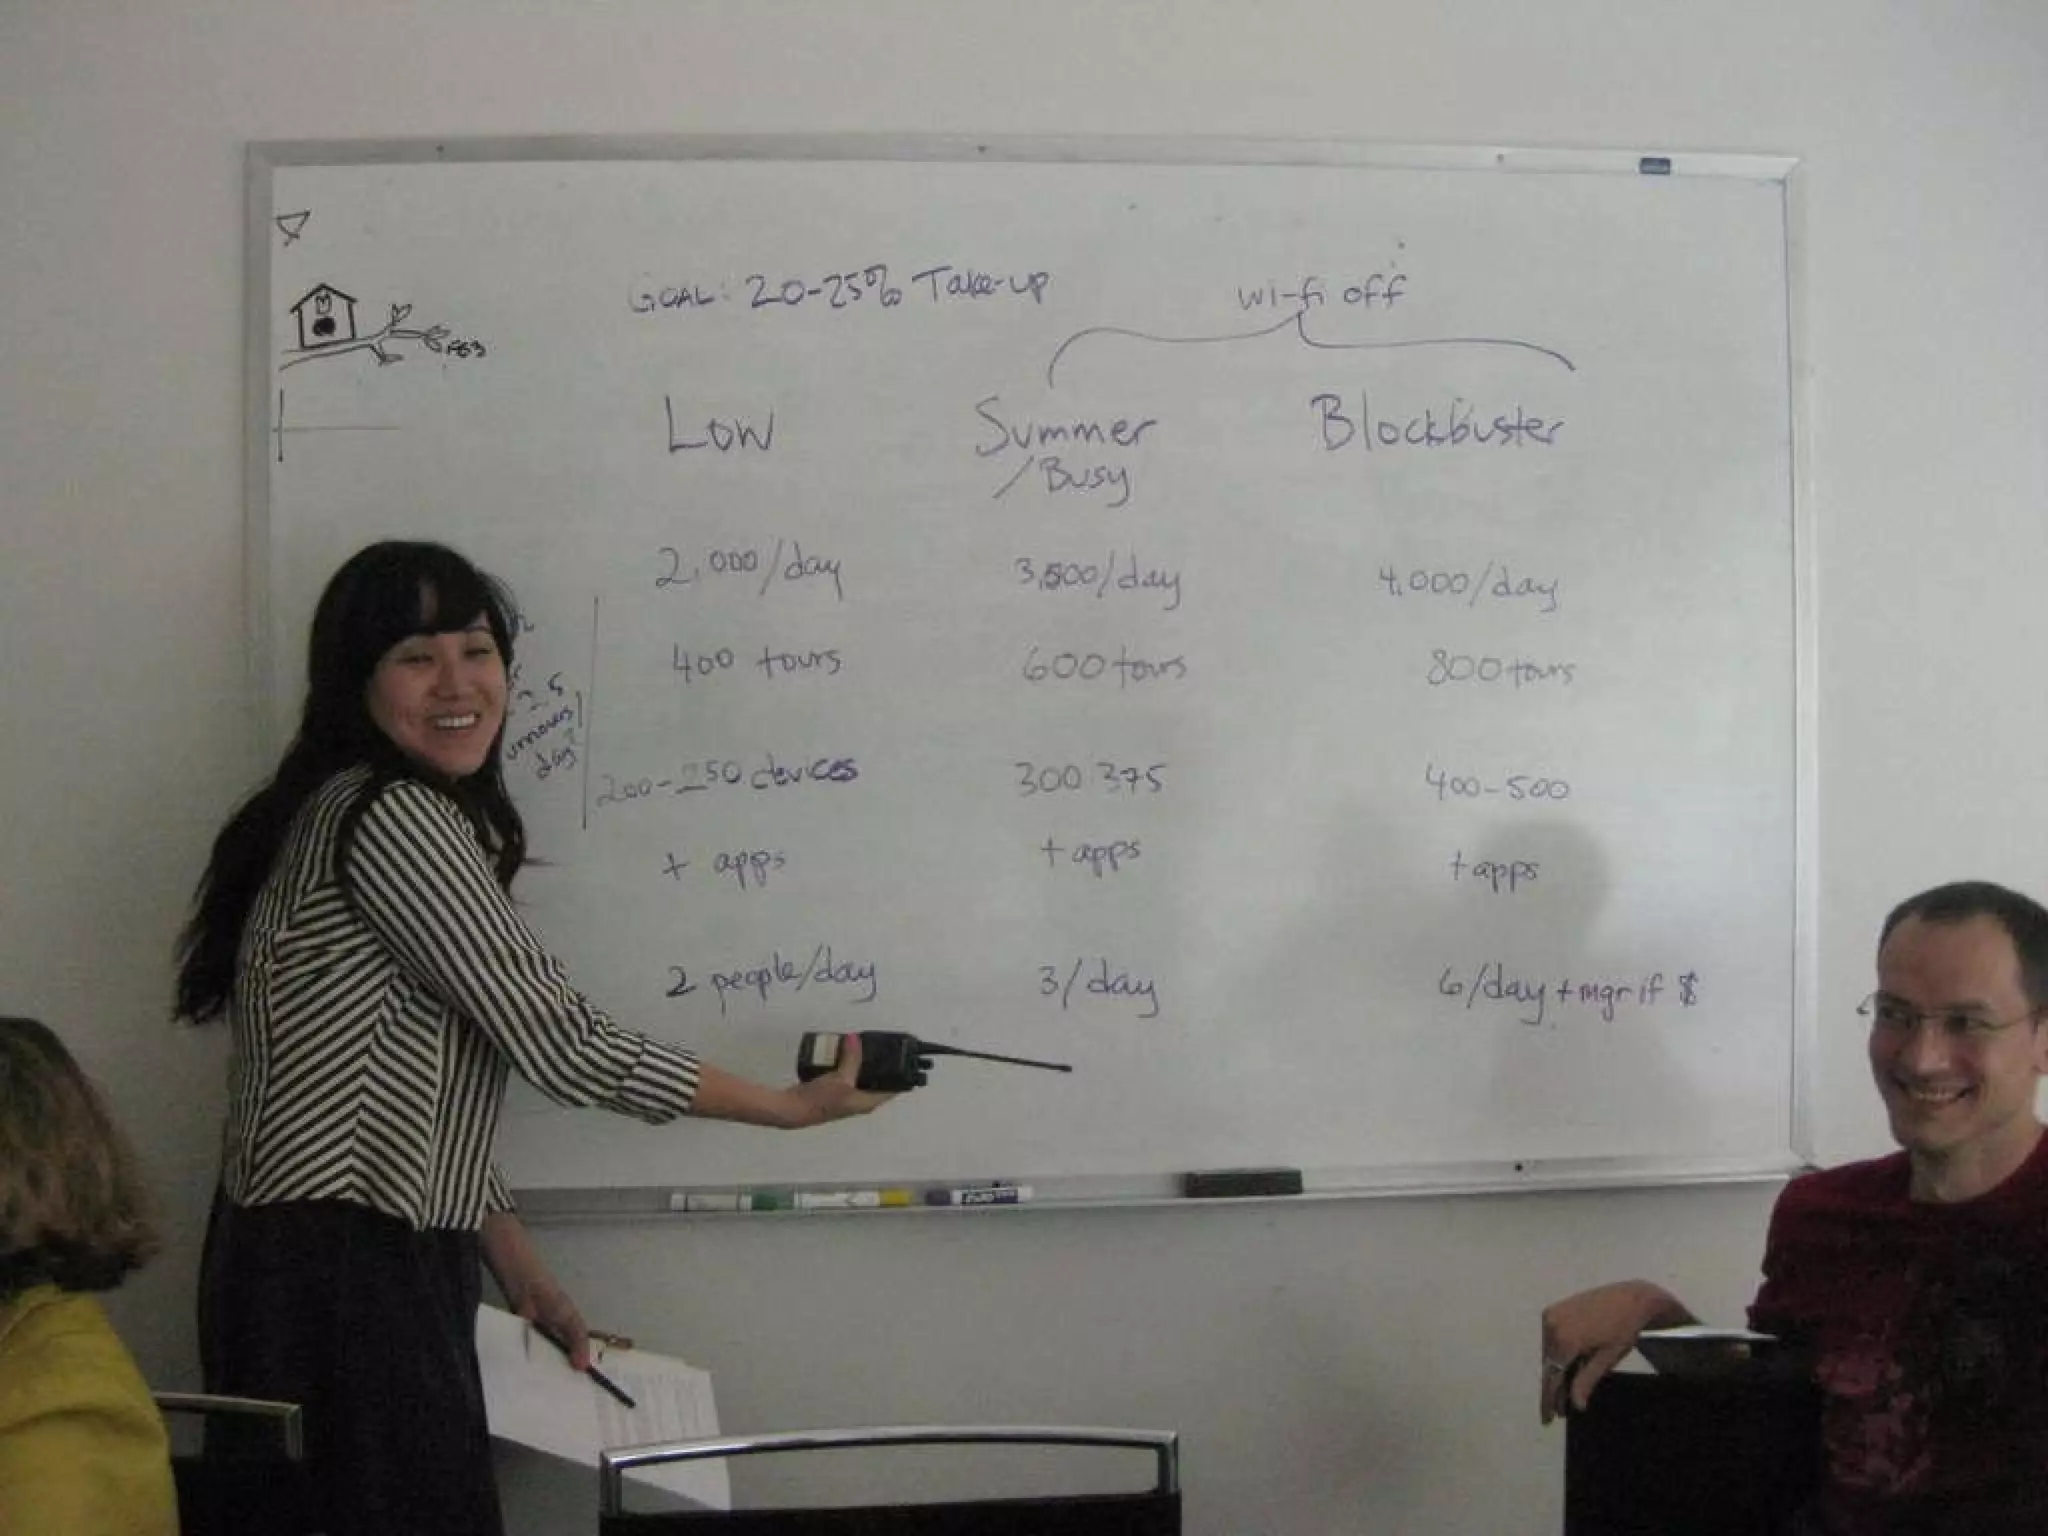 GOAL: 20-25% Take-up
wi-fi off
Low
Summer
/Busy
Blockbuster
2,000/day
3,500/day
4,000/day
400 tours
600 tours
800 tours
200-250 devices
300 375
400-500
+ apps
+ apps
+ apps
2 people/day
3/day
6/day + mgr if $
2.5
day?